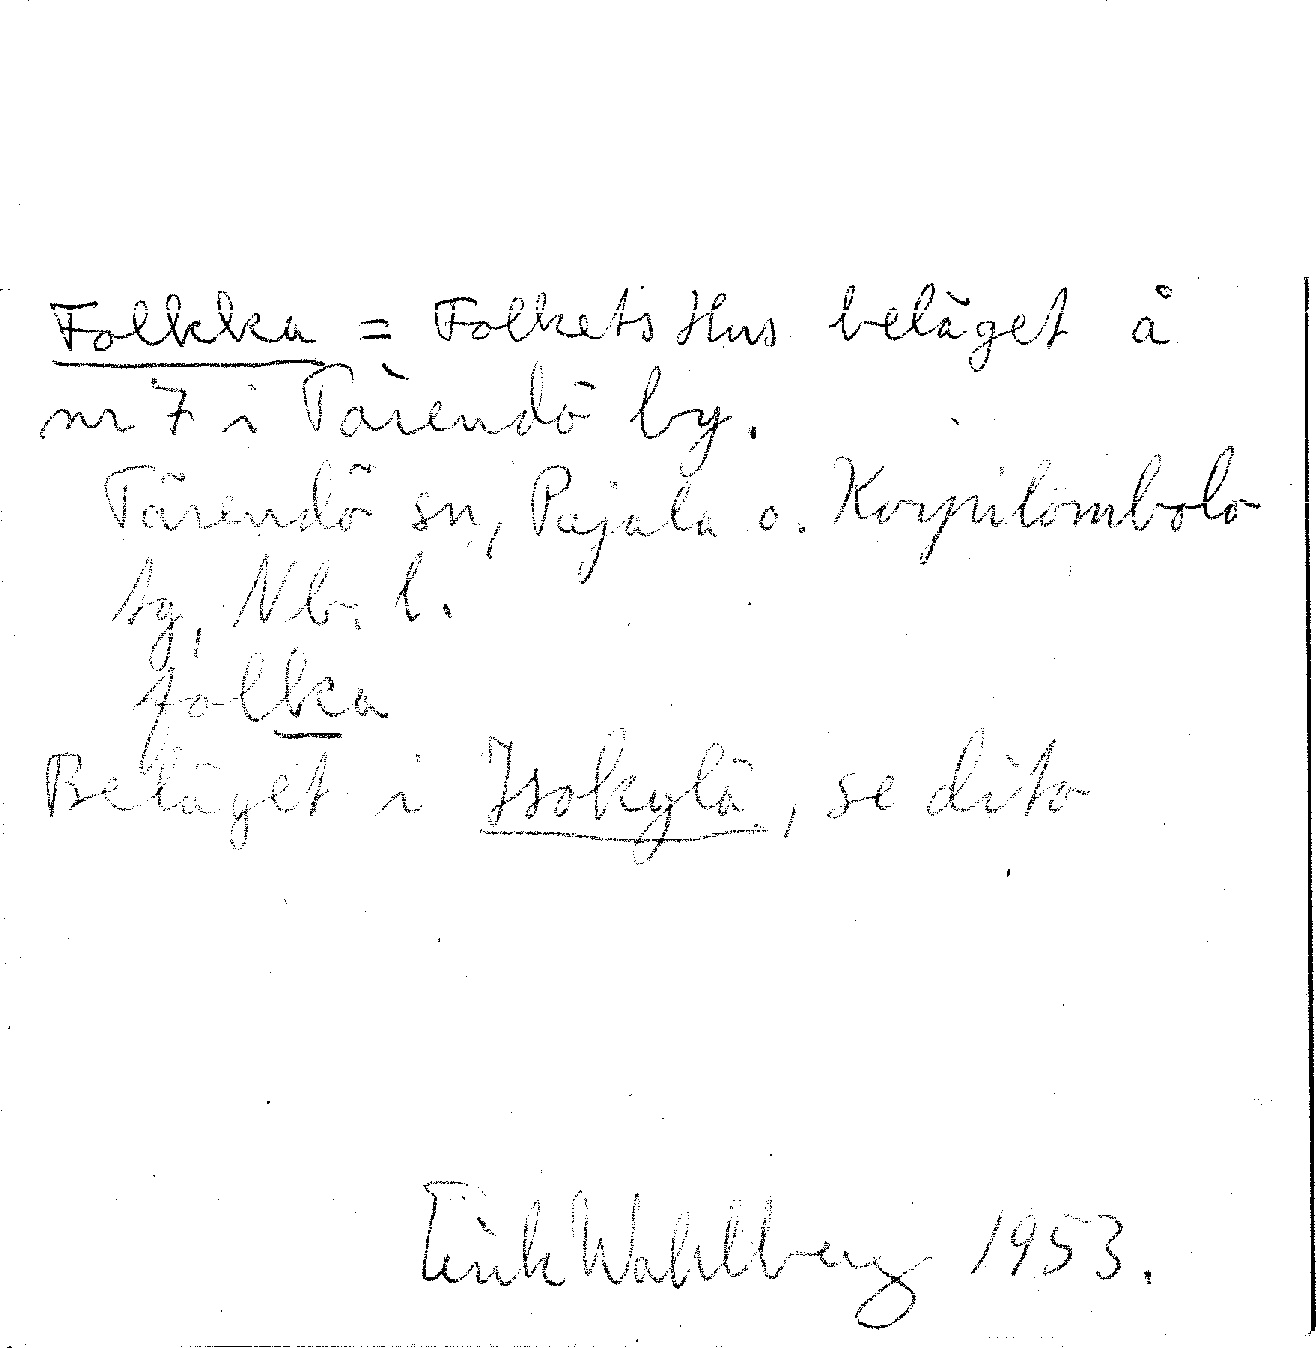 Folkka = Folkets Hus beläget å
nr 7 i Tärendö by.
Tärendö sn, Pajala o. Korpilombolo
tg, Nb. l.
folka
Beläget i Isokylä, se dito
Erik Wahlberg 1953.